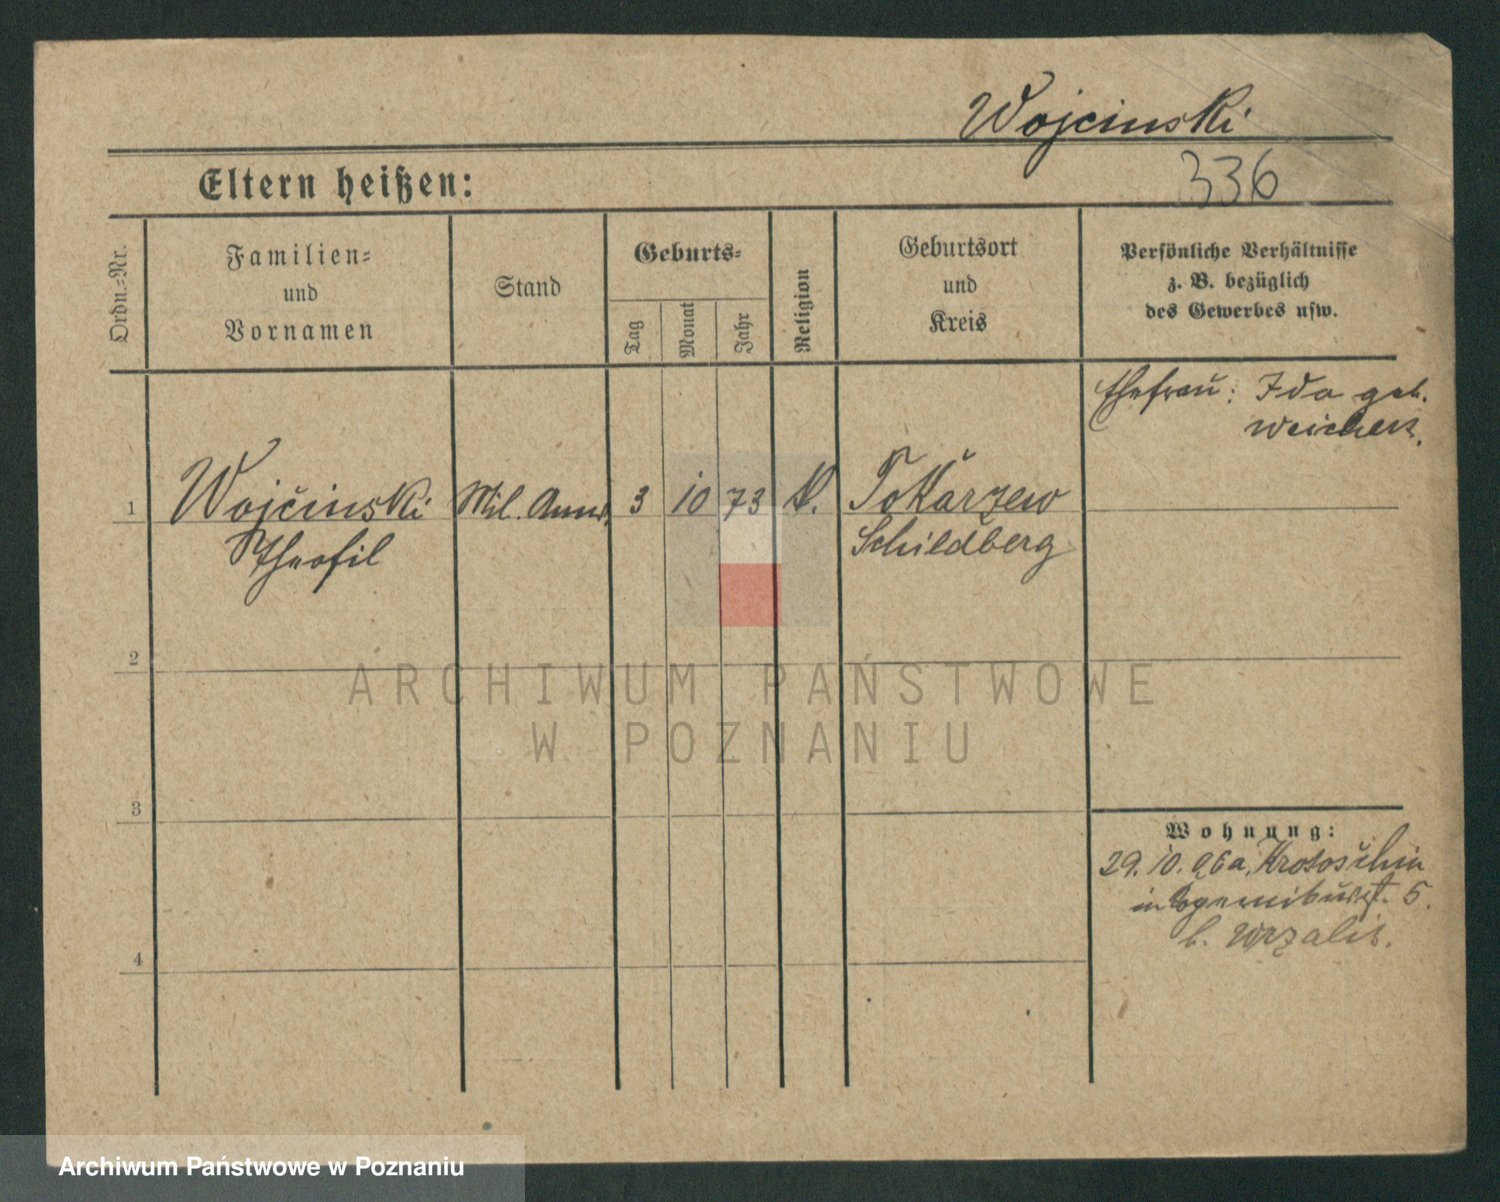 Wojcinski
336
Eltern heißen:
Ordn.=Nr.
Familien=
und
Vornamen
Stand
Geburts=
Tag
Monat
Jahr
Religion
Geburtsort
und
Kreis
Persönliche Verhältnisse
z. B. bezüglich
des Gewerbes usw.
Ehefrau: Ida geb.
Weichert.
1
Wojcinski
Theofil
Mil. Anw.
3
10
73
k.
Tokarzew
Schildberg
2
3
4
Wohnung:
29. 10. 06 a. Krotoschin
in 5.
b.
ARCHIWUM PAŃSTWOWE
W POZNANIU
Archiwum Państwowe w Poznaniu